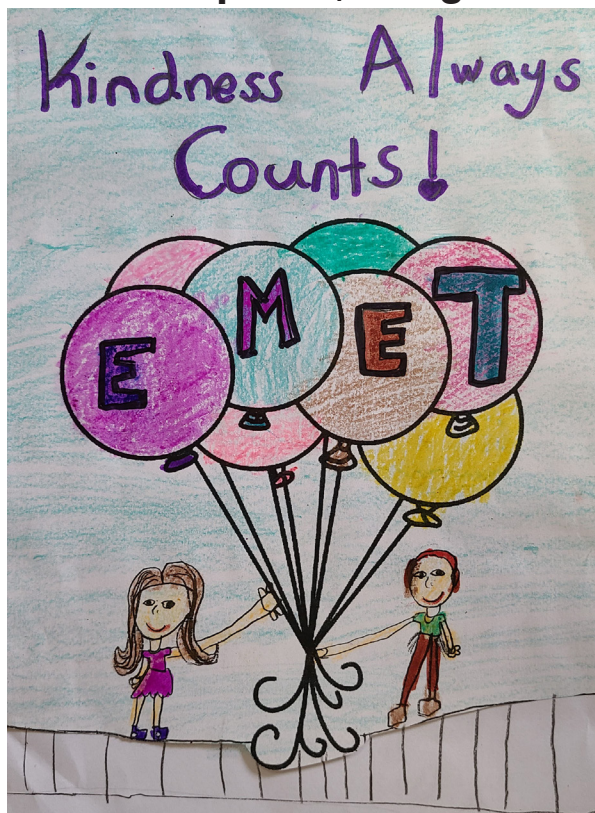 Kindness Always
Counts!
EMET